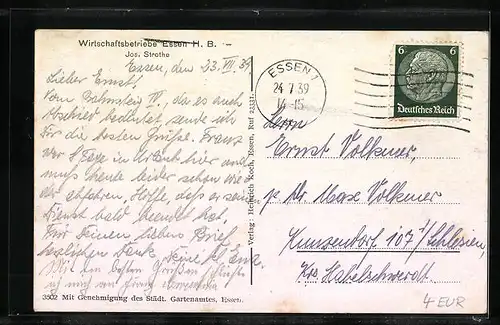 Wirtschaftsbetriebe Essen H. B.
Jos. Strothe
Essen, den 23. VII. 39
Lieber Ernst!
Vom Bahnsteig IV, da es auch
Abschied bedeutet, sende ich
Dir die besten Grüße. Franz
war 8 Tage in Urlaub hier und
muß heute leider schon wie-
der abfahren. Hoffe, daß er seinen
Dienst bald beendet hat.
Für Deinen lieben Brief
herzlichen Dank
Mit den besten Grüßen
3502 Mit Genehmigung des Städt. Gartenamtes, Essen.
Verlag: Heinrich Koch, Essen, Ruf
ESSEN 1
24 7 39
14-15
6 6
Deutsches Reich
Herrn
Ernst Volkmer,
p. Adr. Max Volkmer
Kunzendorf 107 / Schlesien,
Krs. Habelschwerdt.
4 EUR